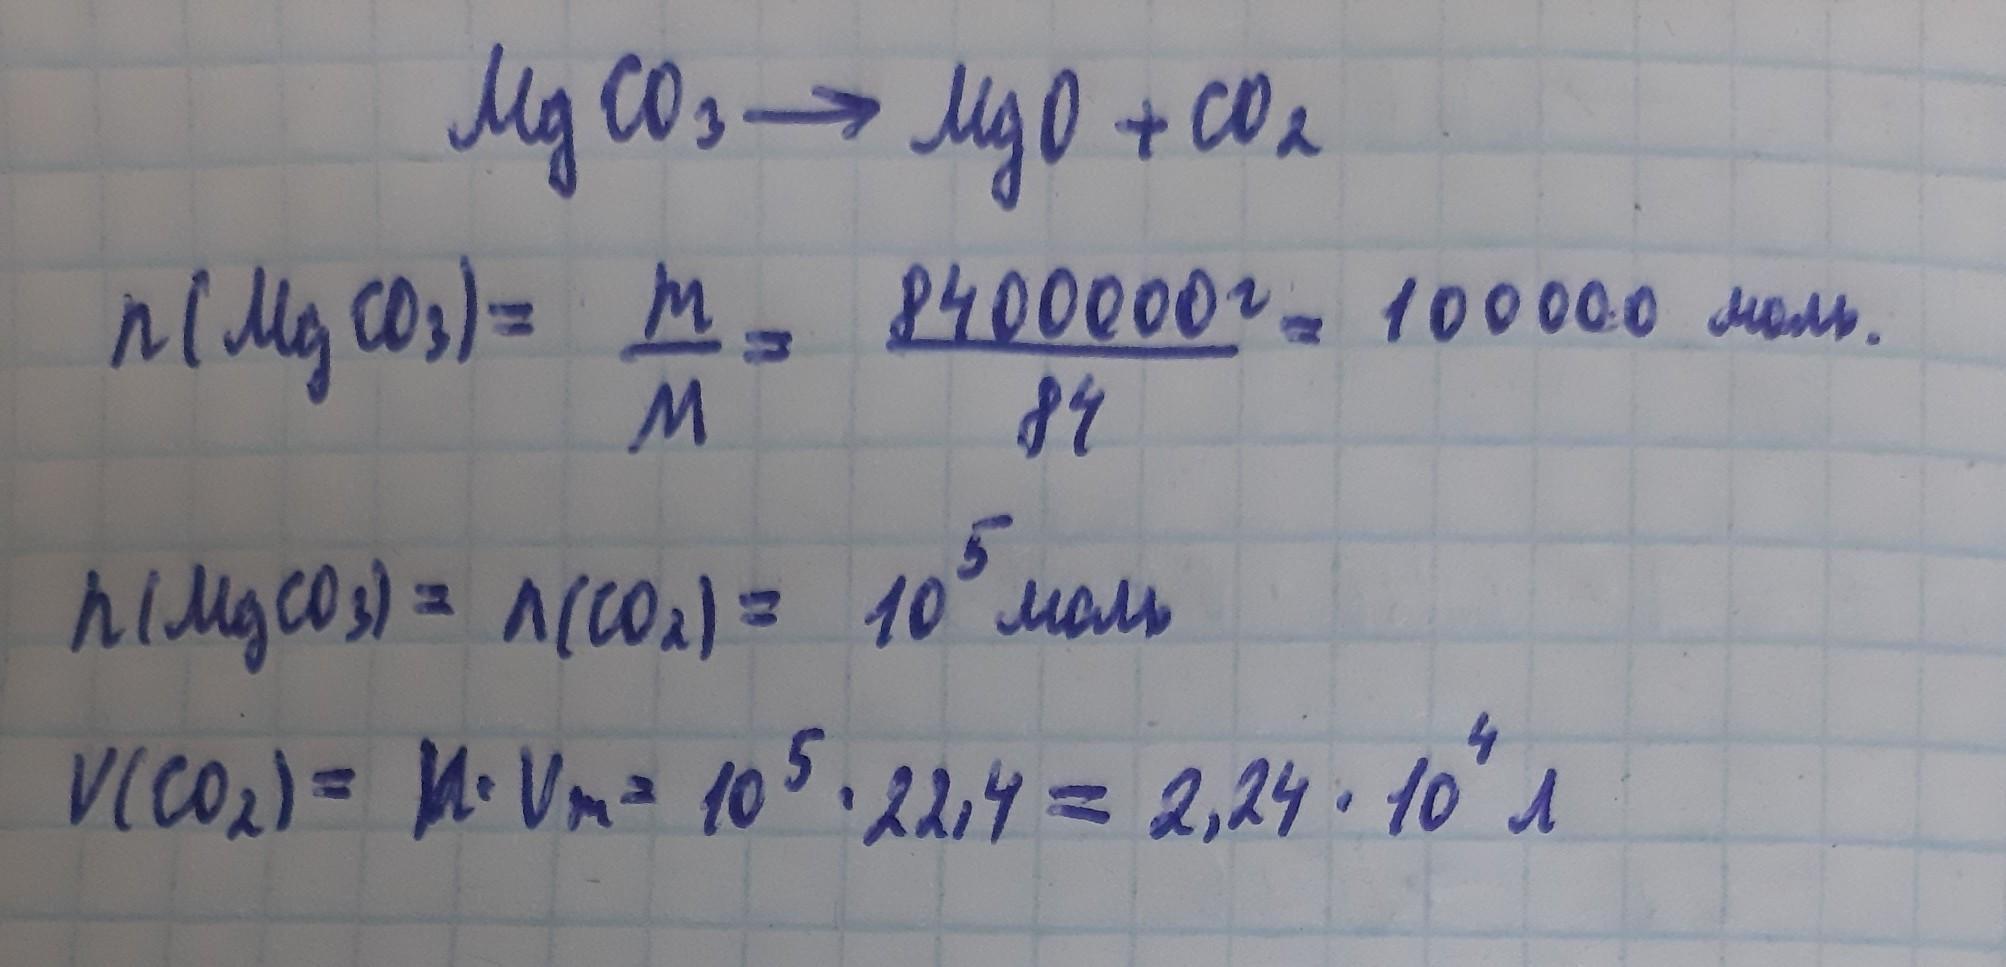 MgCO₃ → MgO + CO₂
n(MgCO₃) = m/M = 8400000г/84 = 100000 моль.
n(MgCO₃) = n(CO₂) = 10⁵ моль
V(CO₂) = n · Vm = 10⁵ · 22,4 = 2,24 · 10⁴ л